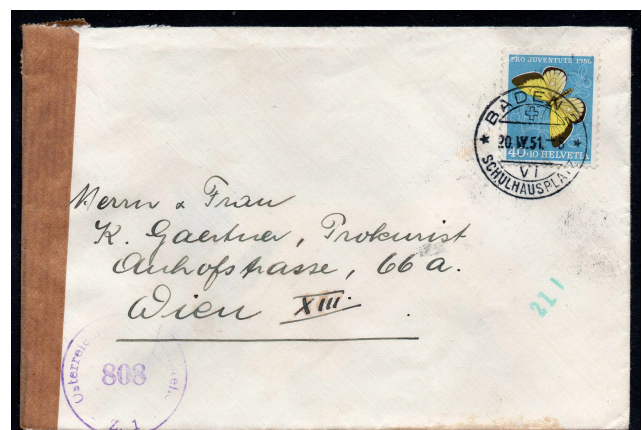 PRO JUVENTUTE 1950
40+10 HELVETIA
BADEN
20.IV.51.
VI
SCHULHAUSPLATZ
Herrn & Frau
K. Gaertner, Prokurist
Auhofstrasse, 66a.
Wien XIII.
211
808
Z. 1